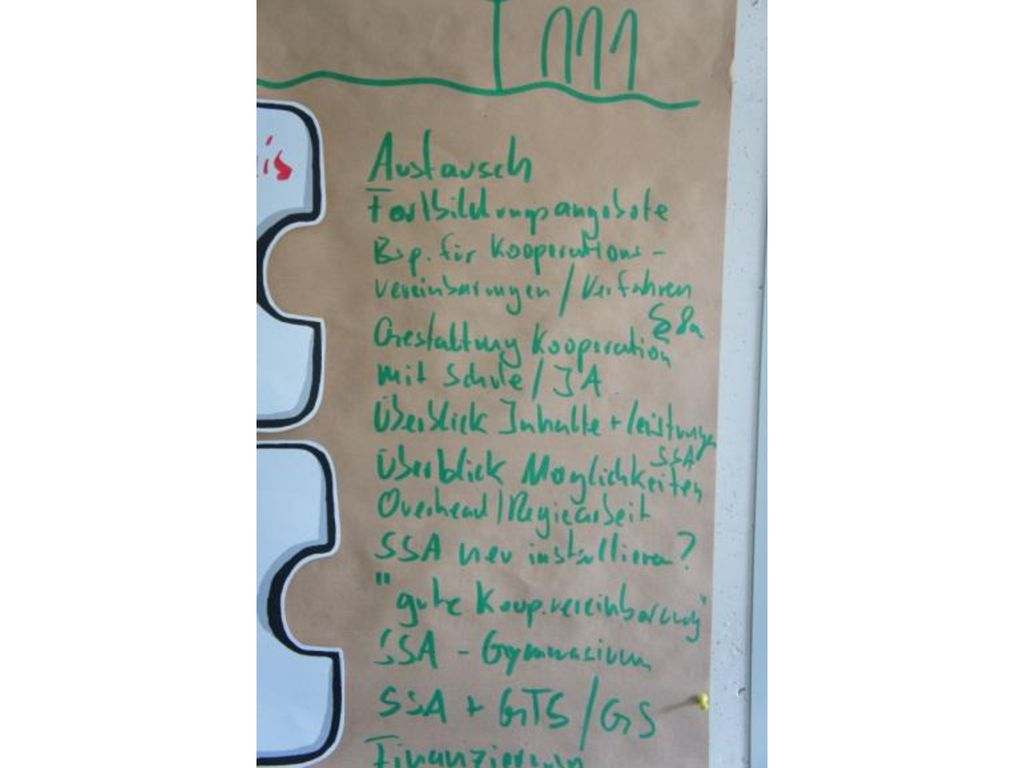 is
Austausch
Fortbildungsangebote
Bsp. für Kooperations-
vereinbarungen / Verfahren
§8a
Gestaltung Kooperation
mit Schule / JA
Überblick Inhalte + Leistungen
SSA
Überblick Möglichkeiten
Overhead / Regiearbeit
SSA neu installieren?
"gute Koop.vereinbarung"
SSA - Gymnasium
SSA + GTS / GS
Finanzierung